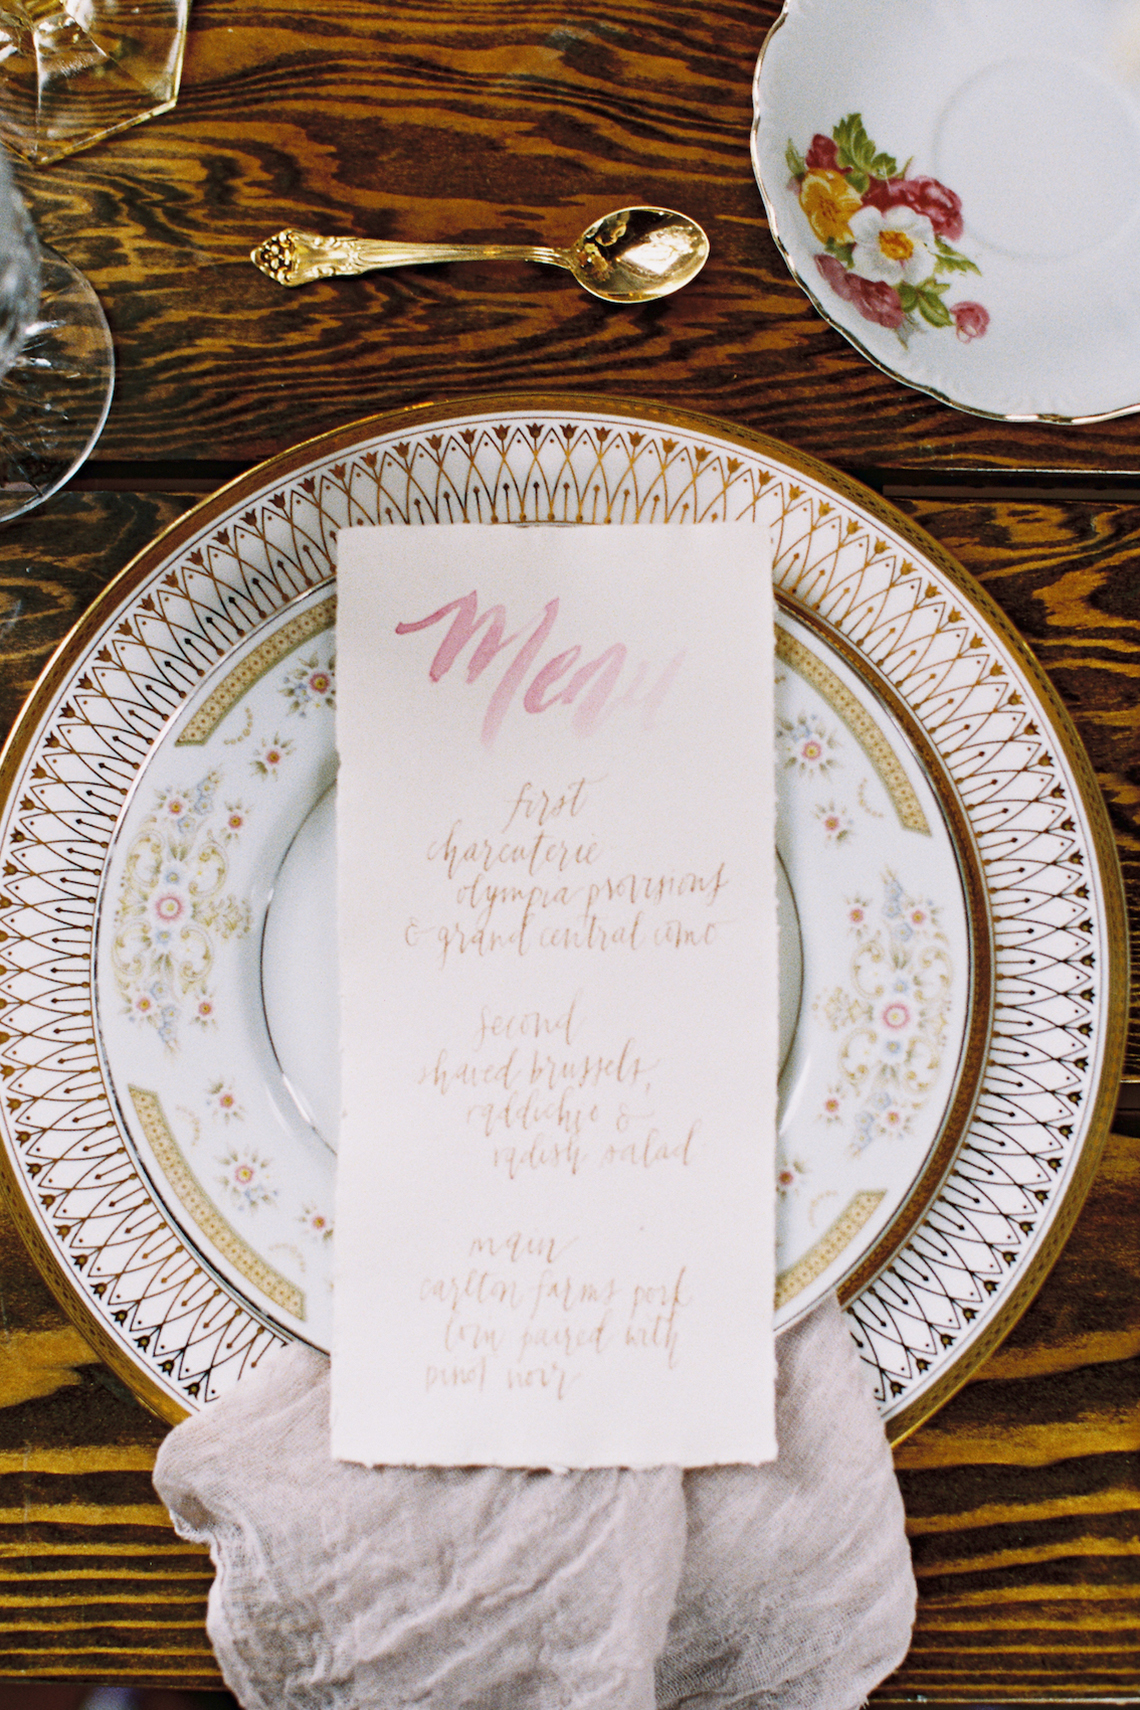 Menu
first
charcuterie
olympia provisions
& grand central como
second
shaved brussels,
raddichio &
radish salad
main
carlton farms pork
loin paired with
pinot noir